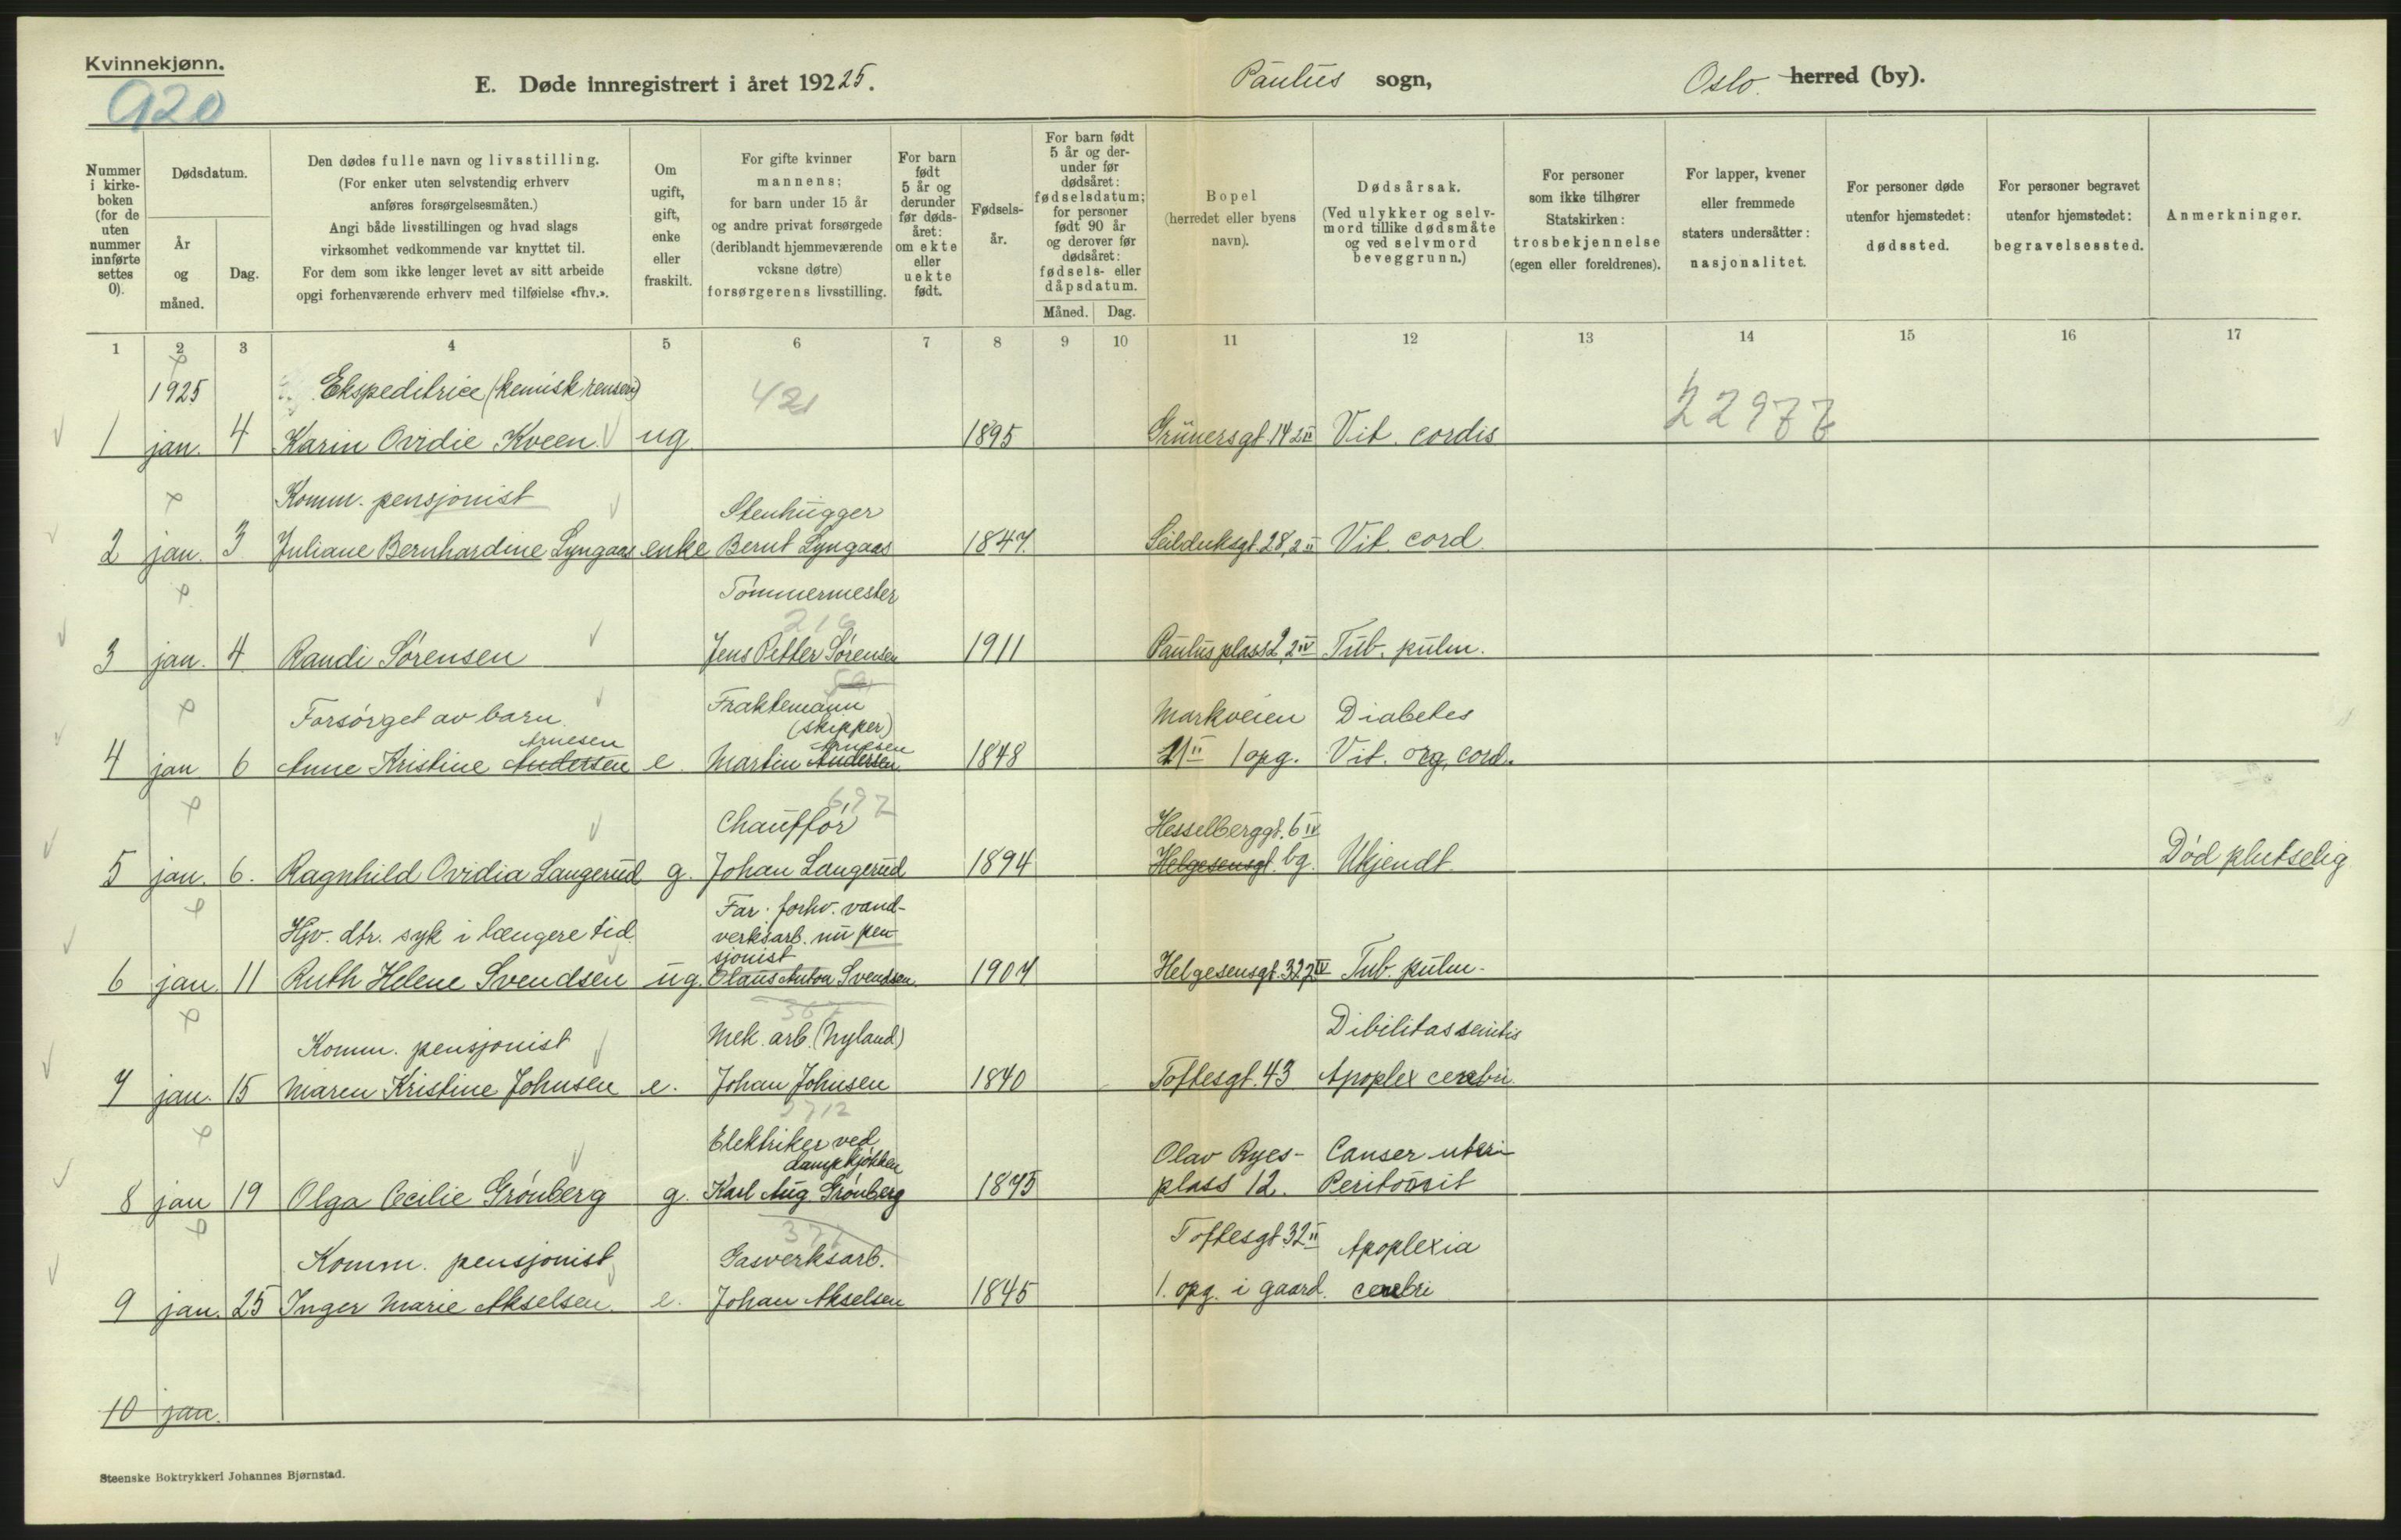 Kvinnekjønn.
920
E. Døde innregistrert i året 19225.
Paulus sogn,
Oslo herred (by).
Nummer i kirkeboken (for de uten nummer innførte settes 0).
Dødsdatum.
År og måned.
Dag.
Den dødes fulle navn og livsstilling.
(For enker uten selvstendig erhverv
anføres forsørgelsesmåten.)
Angi både livsstillingen og hvad slags
virksomhet vedkommende var knyttet til.
For dem som ikke lenger levet av sitt arbeide
opgi forhenværende erhverv med tilføielse «fhv.».
Om ugift, gift, enke eller fraskilt.
For gifte kvinner
mannens;
for barn under 15 år
og andre privat forsørgede
(deriblandt hjemmeværende
voksne døtre)
forsørgerens livsstilling.
For barn født 5 år og derunder før dødsåret: om ekte eller uekte født.
Fødselsår.
For barn født 5 år og derunder før dødsåret: fødselsdatum; for personer født 90 år og derover før dødsåret: fødsels- eller dåpsdatum.
Måned. Dag.
Bopel
(herredet eller byens
navn).
Dødsårsak.
(Ved ulykker og selvmord tillike dødsmåte og ved selvmord beveggrunn.)
For personer
som ikke tilhører
Statskirken:
trosbekjennelse
(egen eller foreldrenes).
For lapper, kvener
eller fremmede
staters undersåtter:
nasjonalitet.
For personer døde
utenfor hjemstedet:
dødssted.
For personer begravet
utenfor hjemstedet:
begravelsessted.
Anmerkninger.
1 2 3 4 5 6 7 8 9 10 11 12 13 14 15 16 17
1925 Ekspeditrice (kemisk renseri) 421 22977
1 jan. 4 Karin Ovidie Kveen ug. 1895 Grünersgt. 14 2 II Vit. cordis
Komm. pensjonist Stenhugger
2 jan. 3 Juliane Bernhardine Lyngaas enke Bernt Lyngaas 1847 Seilduksgt. 28, 2 II Vit. cord.
Tömmermester
216
3 jan. 4 Randi Sörensen Jens Petter Sörensen 1911 Paulus plass 2, 2 IV Tub. pulm.
Forsörget av barn Fraktemann (skipper) Markveien Diabetes
Arnesen Arnesen
4 jan 6 Anne Kristine Andersen e. Martin Andersen 1848 21 II 1 opg. Vit. org. cord.
697
Chaufför Hesselberggt. 6 IV
5 jan. 6. Ragnhild Ovidia Langerud g. Johan Langerud 1894 Helgesensgt. bg. Ukjendt. Död plutselig
Hjv. dtr. syk i længere tid Far: forhv. vand-
verksarb. nu pen-
sjonist
6 jan. 11 Ruth Helene Svendsen ug. Olaus Anton Svendsen. 1907 Helgesensgt. 32, 2 IV Tub. pulm.
Komm. pensjonist Mek. arb. (Nyland) Dibilitas senitis
7 jan. 15 Maren Kristine Johnsen e. Johan Johnsen 1840 Toftesgt. 43 Apoplex cerebri.
Elektriker ved
dampkjökken Olav Ryes- Canser uteri
8 jan 19 Olga Cecilie Grönberg g. Karl Aug. Grönberg 1875 plass 12. Peritonit
377
Komm. pensjonist Gasverksarb. Toftesgt. 32 II Apoplexia
9 jan. 25 Inger Marie Akselsen e. Johan Akselsen 1845 1. opg. i gaard. cerebri
10 jan.
Steenske Boktrykkeri Johannes Bjørnstad.